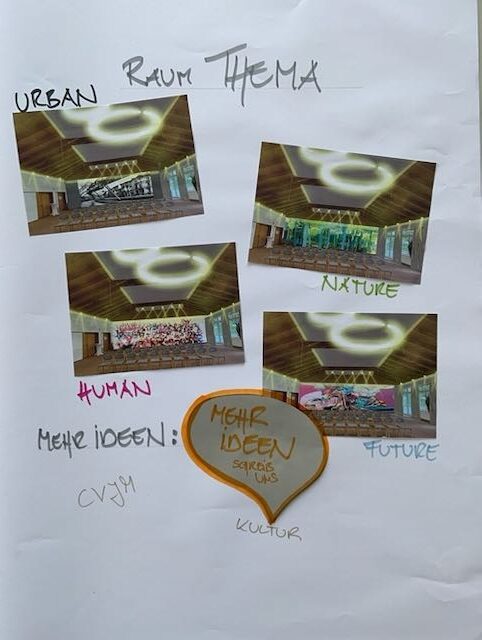 RAUM THEMA
URBAN
NATURE
HUMAN
FUTURE
MEHR IDEEN:
MEHR
IDEEN
SCHREIB
UNS
CVJM
KULTUR